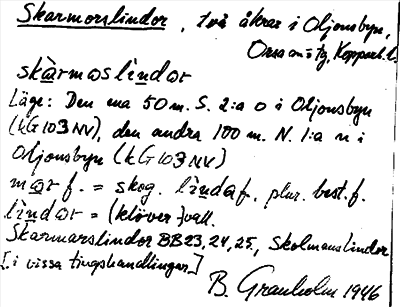 Skarmorslindor, två åkrar i Oljonsbyn,
Orsa ..., Kopparb. l.
skàrmoslìndor
Läge: Den ena 50 m. S. 2:a o i Oljonsbyn
(kG103NV), den andra 100 m. N. 1:a n i
Oljonsbyn (kG103NV)
mor f. = skog. lìnda f., plur. best. f.
lìndor = (klöver-)vall.
Skarmarslindor BB23, 24, 25, Skolmanslindor
[i vissa tingshandlingar]
B. Granholm 1946